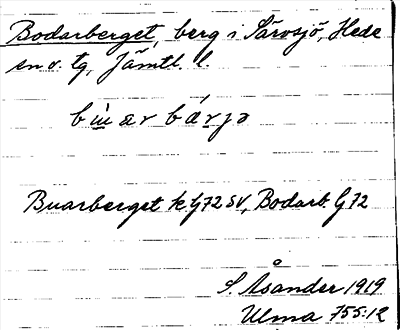 Bodarberget, berg i Särvsjö, Hede
sn o. tg, Jämtl. l.
Buarberget k G72 SV, Bodarb. G72
S. Åsander 1919
Ulma 755:12